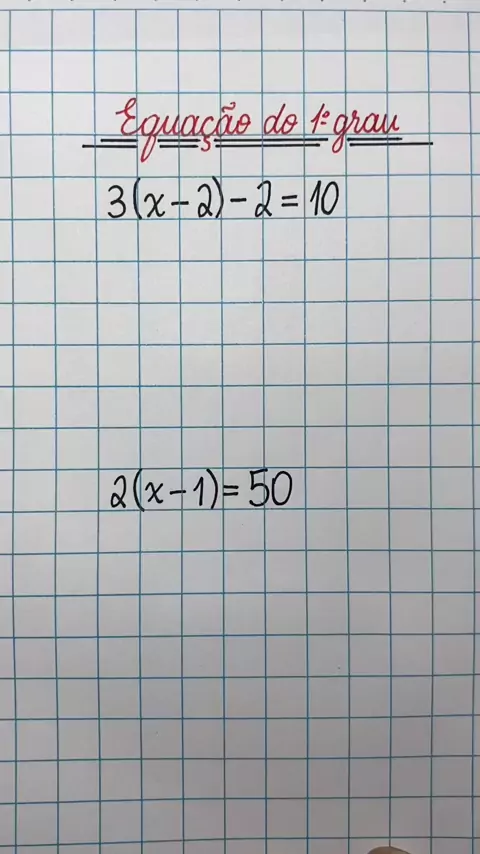 Equação do 1º grau
3(x-2)-2=10
2(x-1)=50